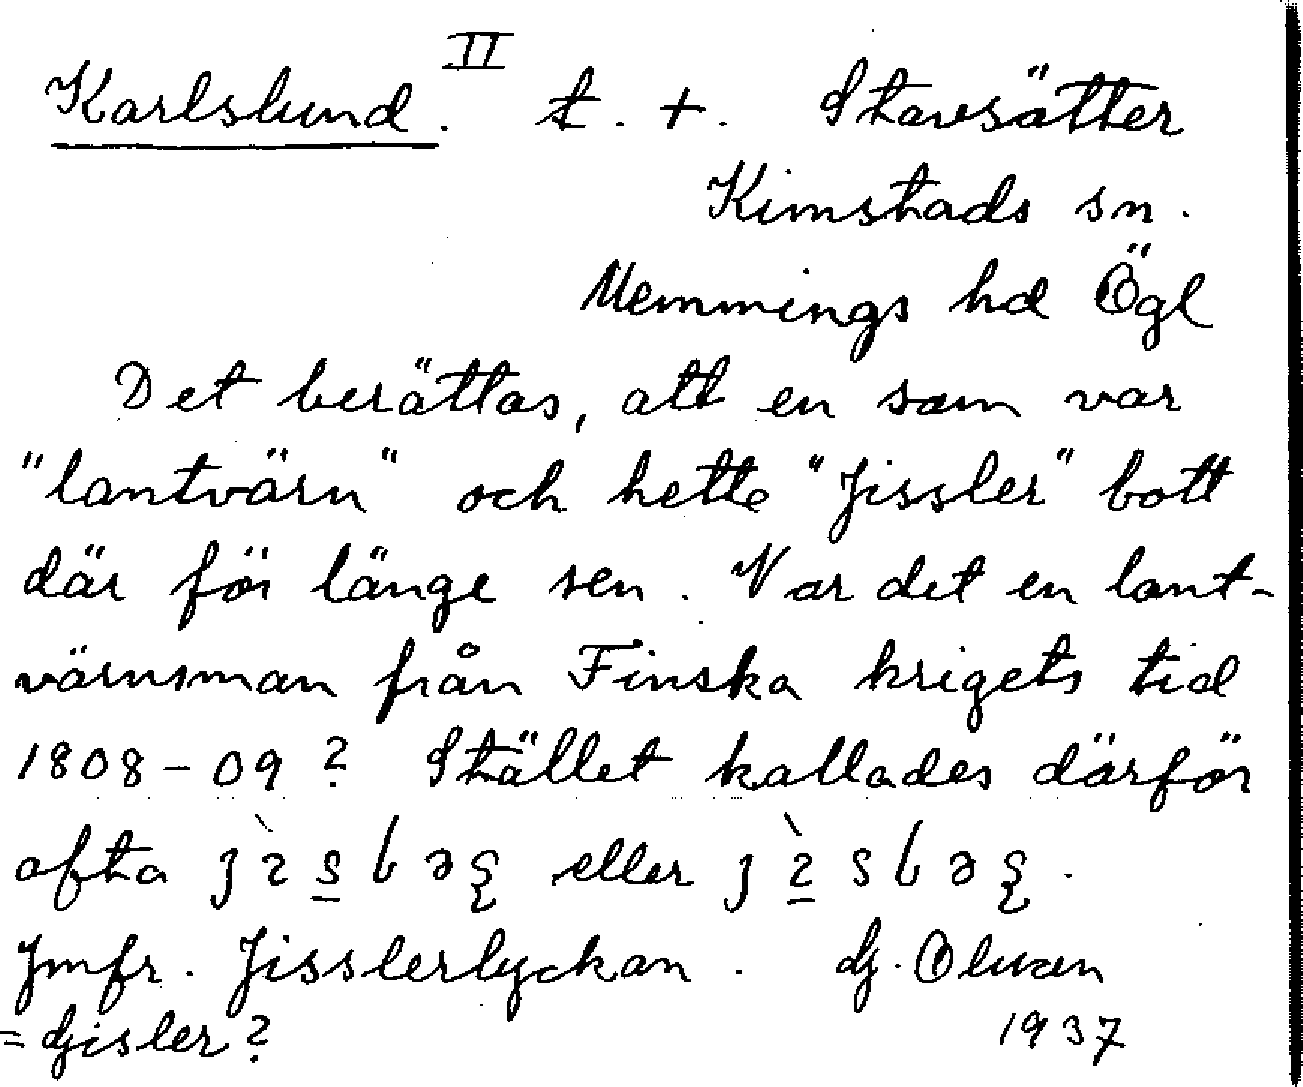 Karlslund. II t. +. Stavsätter
Kimstads sn.
Memmings hd Ögl
Det berättas, att en som var
"lantvärn" och hette "Jissler" bott
där för länge sen. Var det en lant-
värnsman från Finska krigets tid
1808-09? Stället kallades därför
ofta eller
Jmfr. Jisslerlyckan. Olwen
= Gjisler? 1937